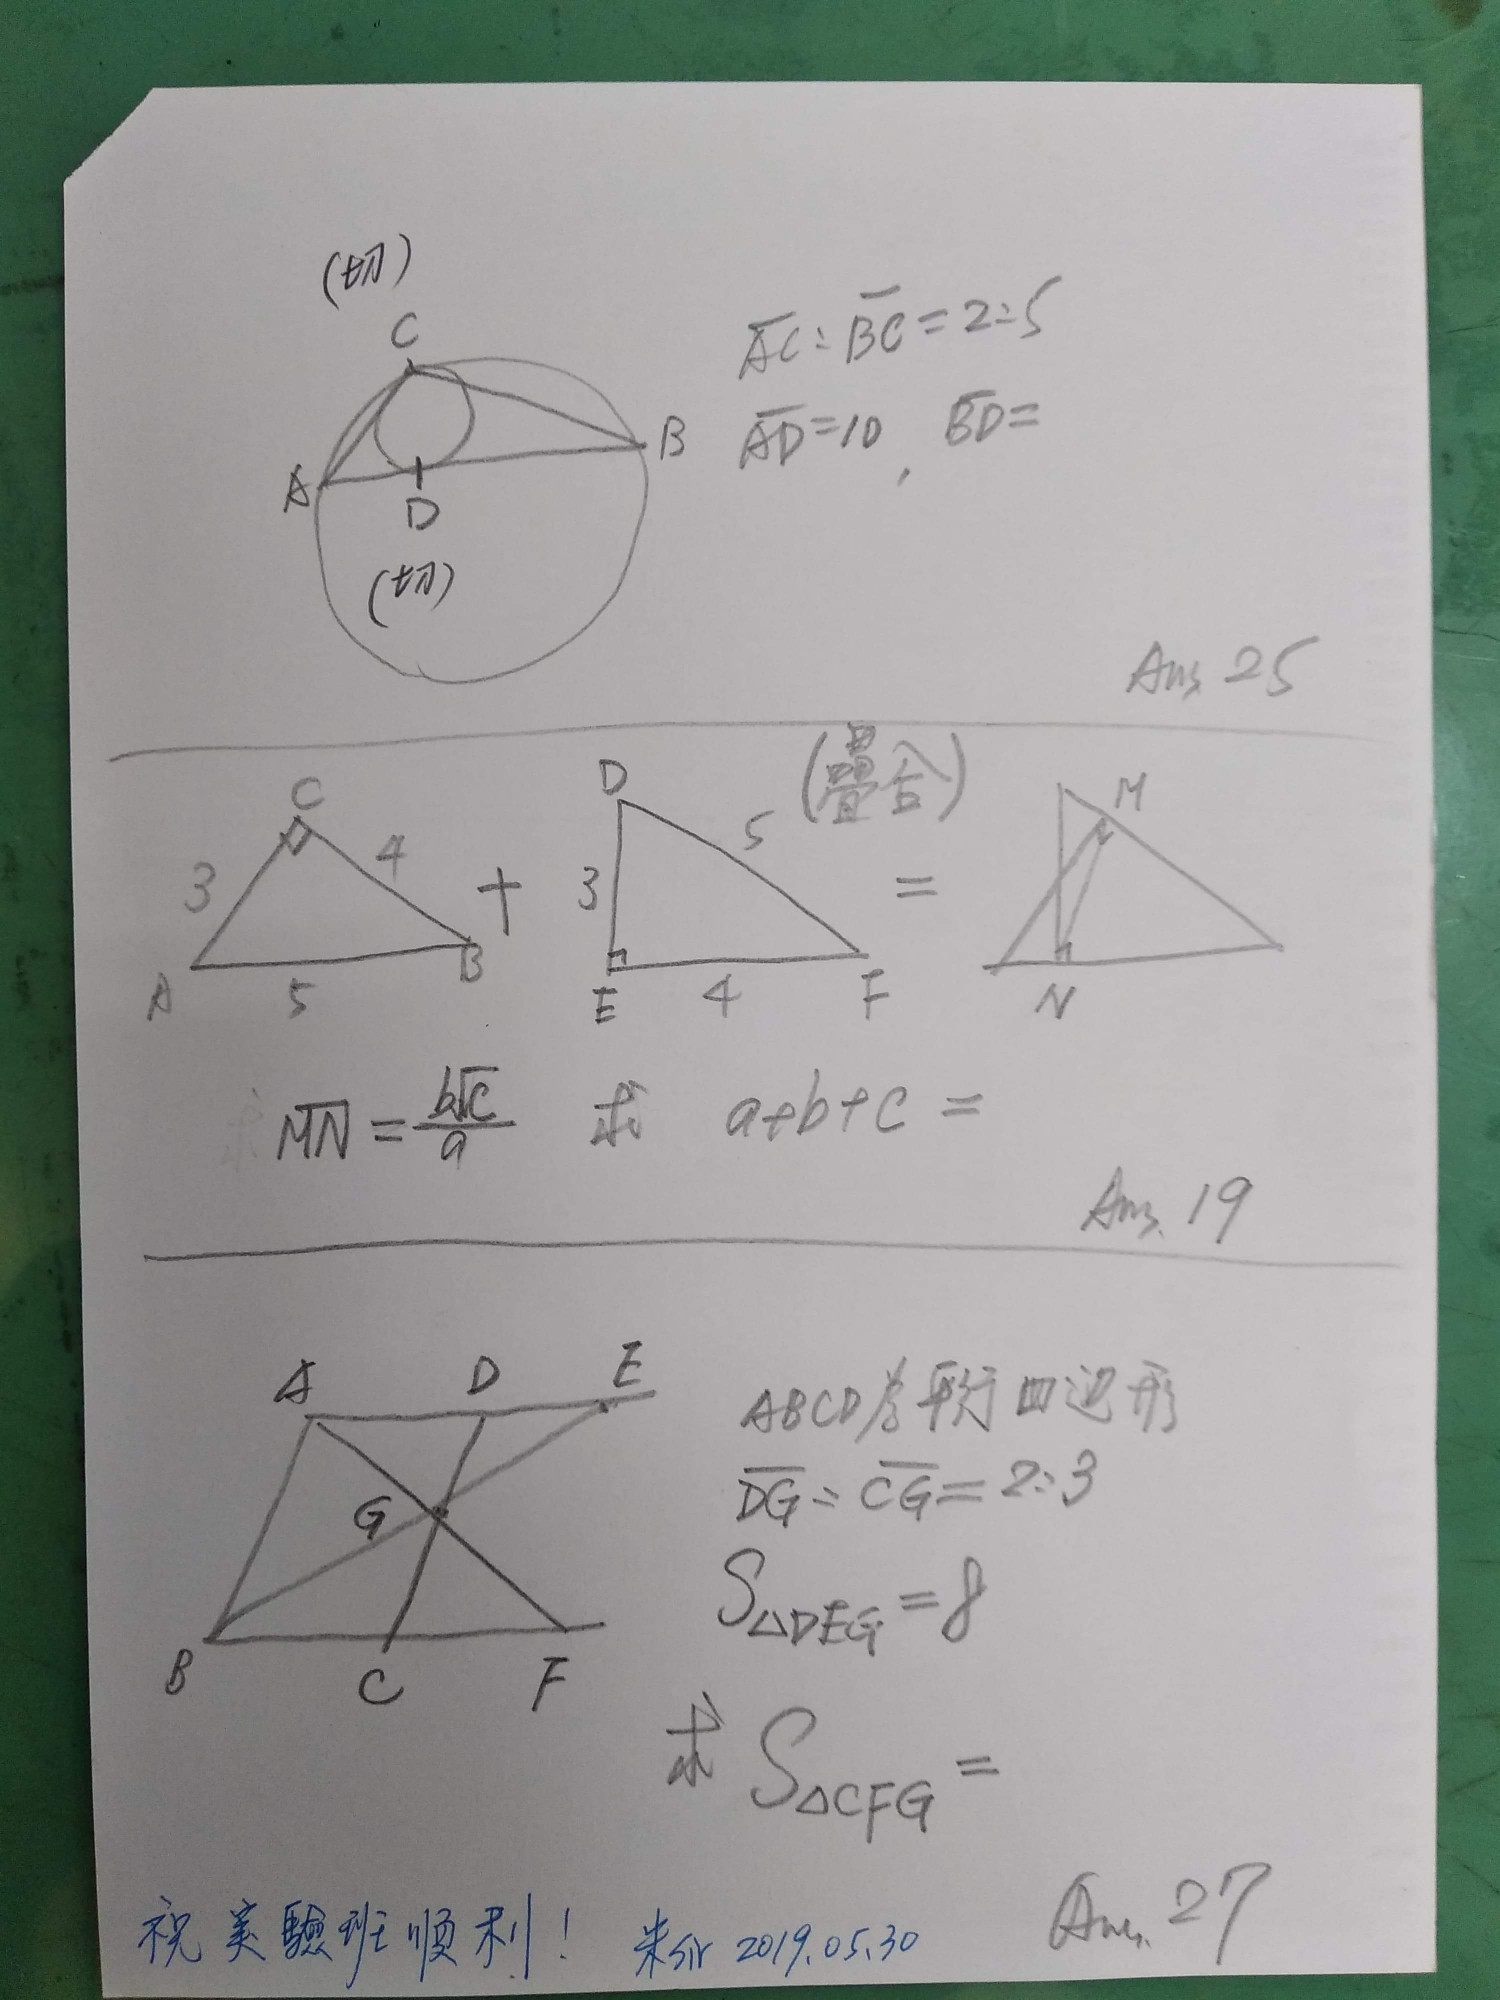 (切)
C
A
B
D
(切)
A̅C̅:B̅C̅=2:5
A̅D̅=10, B̅D̅=
Ans 25
C
3
4
A
5
B
+
D
3
5
E
4
F
(疊合)
=
M
N
M̅N̅=b√c/a 求 a+b+c=
Ans. 19
A D E
G
B C F
ABCD为平行四边形
D̅G̅:C̅G̅=2:3
S△DEG=8
求 S△CFG=
Ans. 27
祝 实驗班順利! 米Sir 2019.05.30